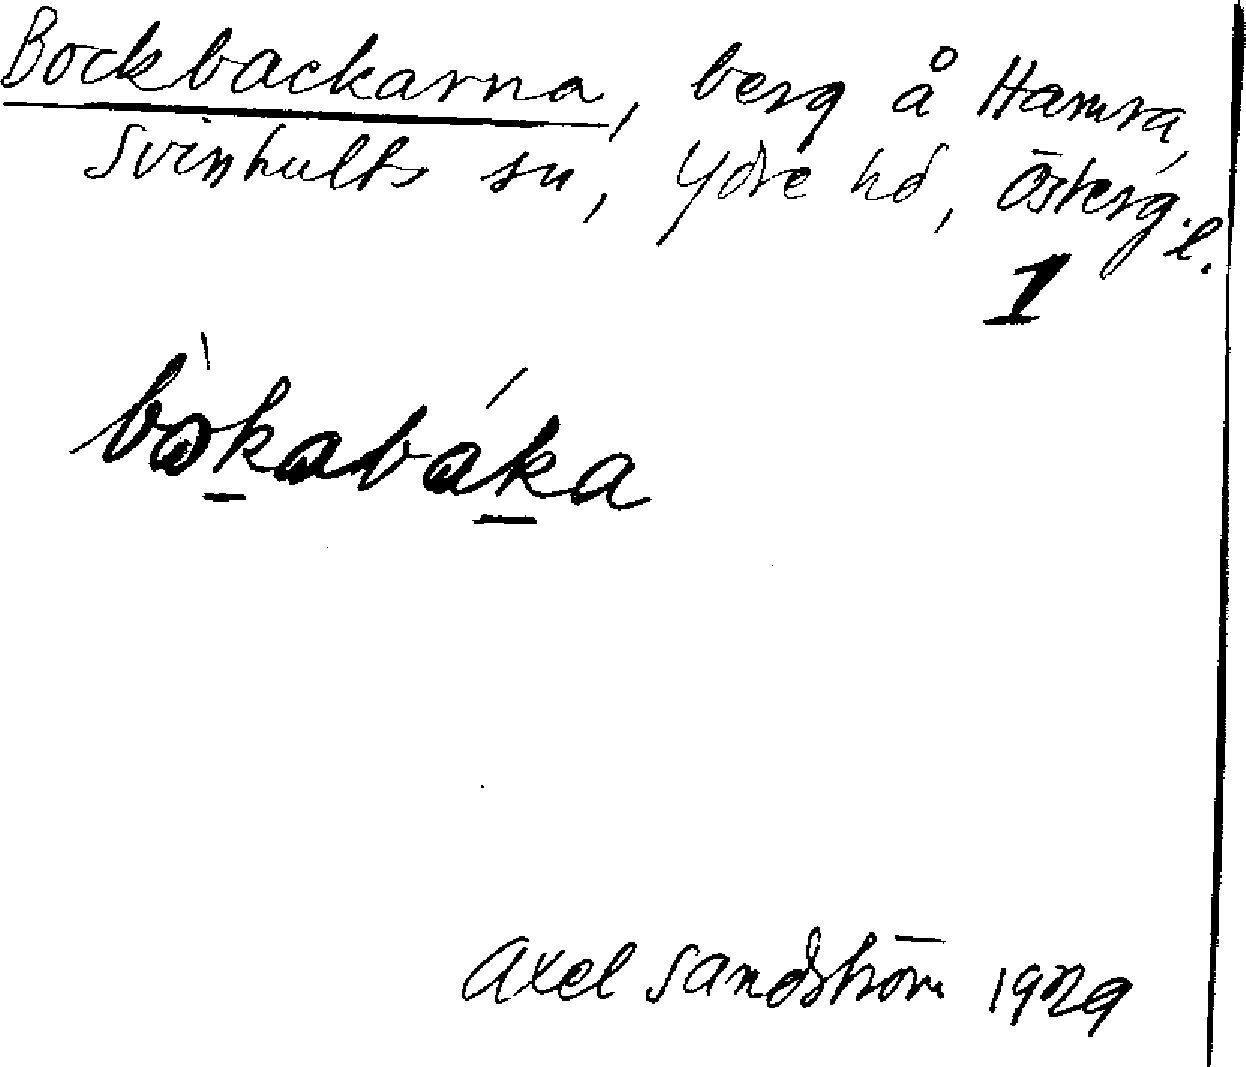 Bockbackarna, berg å Hamra,
Svinhults sn, Ydre hd, Österg.l.
1
bòkabáka
Axel Sandström 1929